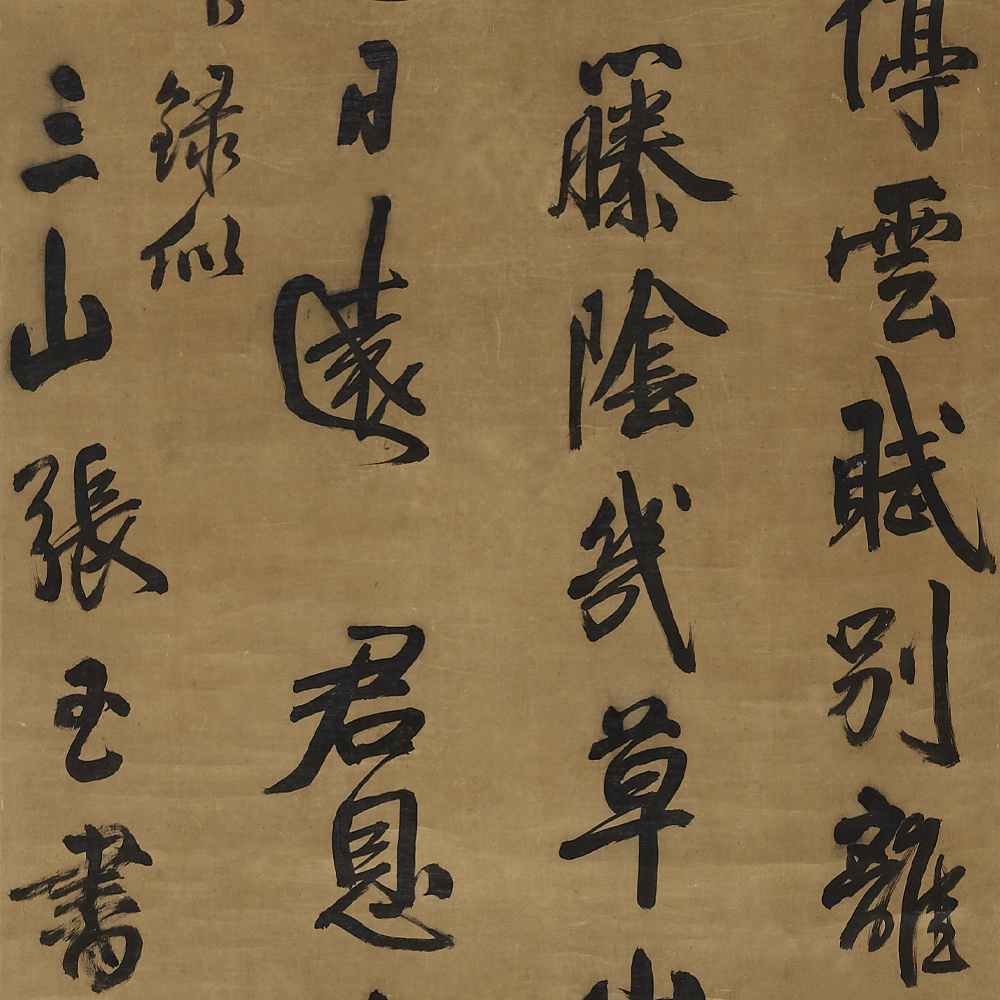 停雲賦別離
藤陰幾草
日遠君思
錄似
三山張
書